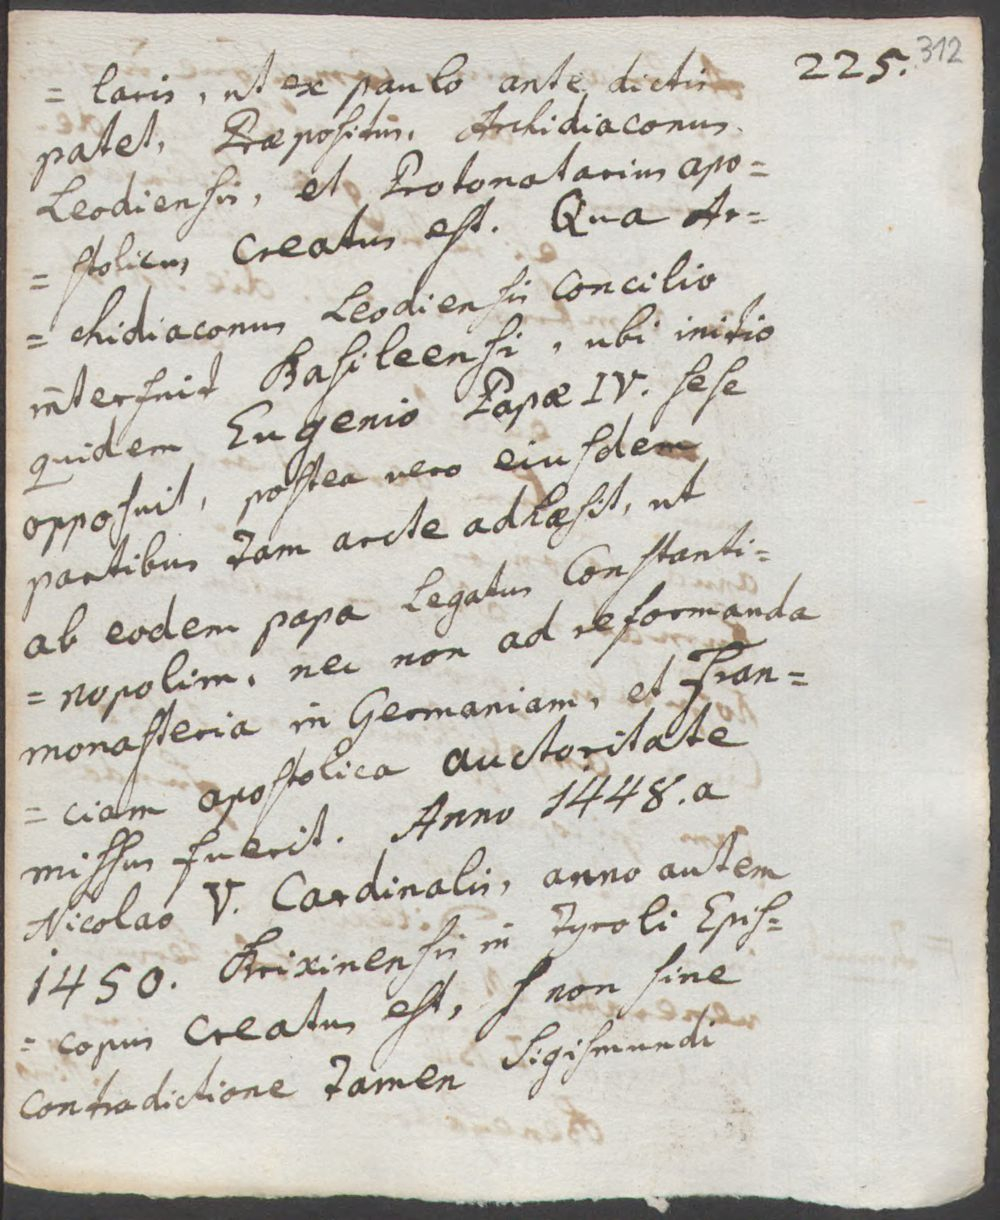 225. 312
= laris, ut ex paulo ante dictis
patet, Præpositus, Archidiaconus
Leodiensis, et Protonotarius apo=
= stolicus creatus est. Qua Ar=
= chidiaconus Leodiensis Concilio
interfuit Basileensi, ubi initio
quidem Eugenio Papæ IV. sese
opposuit, postea vero eiusdem
partibus tam arcte adhæsit, ut
ab eodem papa Legatus Constanti=
= nopolim, nec non ad reformanda
monasteria in Germaniam, et Fran=
= ciam apostolica auctoritate
missus fuerit. Anno 1448. a
Nicolao V. Cardinalis, anno autem
1450. Brixinensis in Tyroli Epis=
= copus creatus est, non sine
contradictione tamen Sigismundi